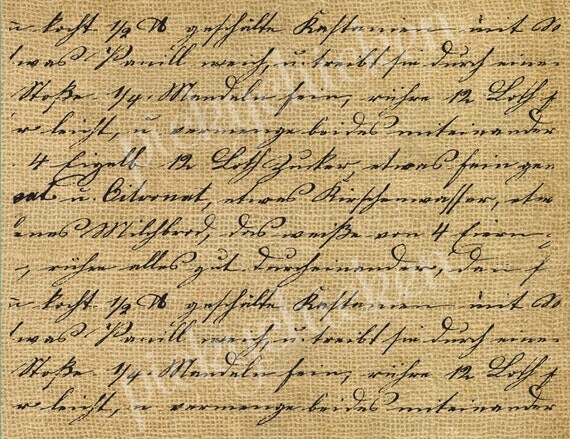 kocht 1/2 ℔ geschälte Kastanien mit
was Vanill weich, u. treibt sie durch einen
Stoße 1/4. Mandeln fein, rühre 12 Loth
r leicht, u vermenge beides miteinander
4 Eigelb 12 Loth Zucker, etwas fein gen
eat u. Citronat, etwas Kirschenwasser, etw
enes Milchbrod, das weiße von 4 Eiern
, rühre alles gut durcheinander, den f
kocht 1/2 ℔ geschälte Kastanien mit
was Vanill weich, u. treibt sie durch einen
Stoße 1/4. Mandeln fein, rühre 12 Loth
r leicht, u vermenge beides miteinander